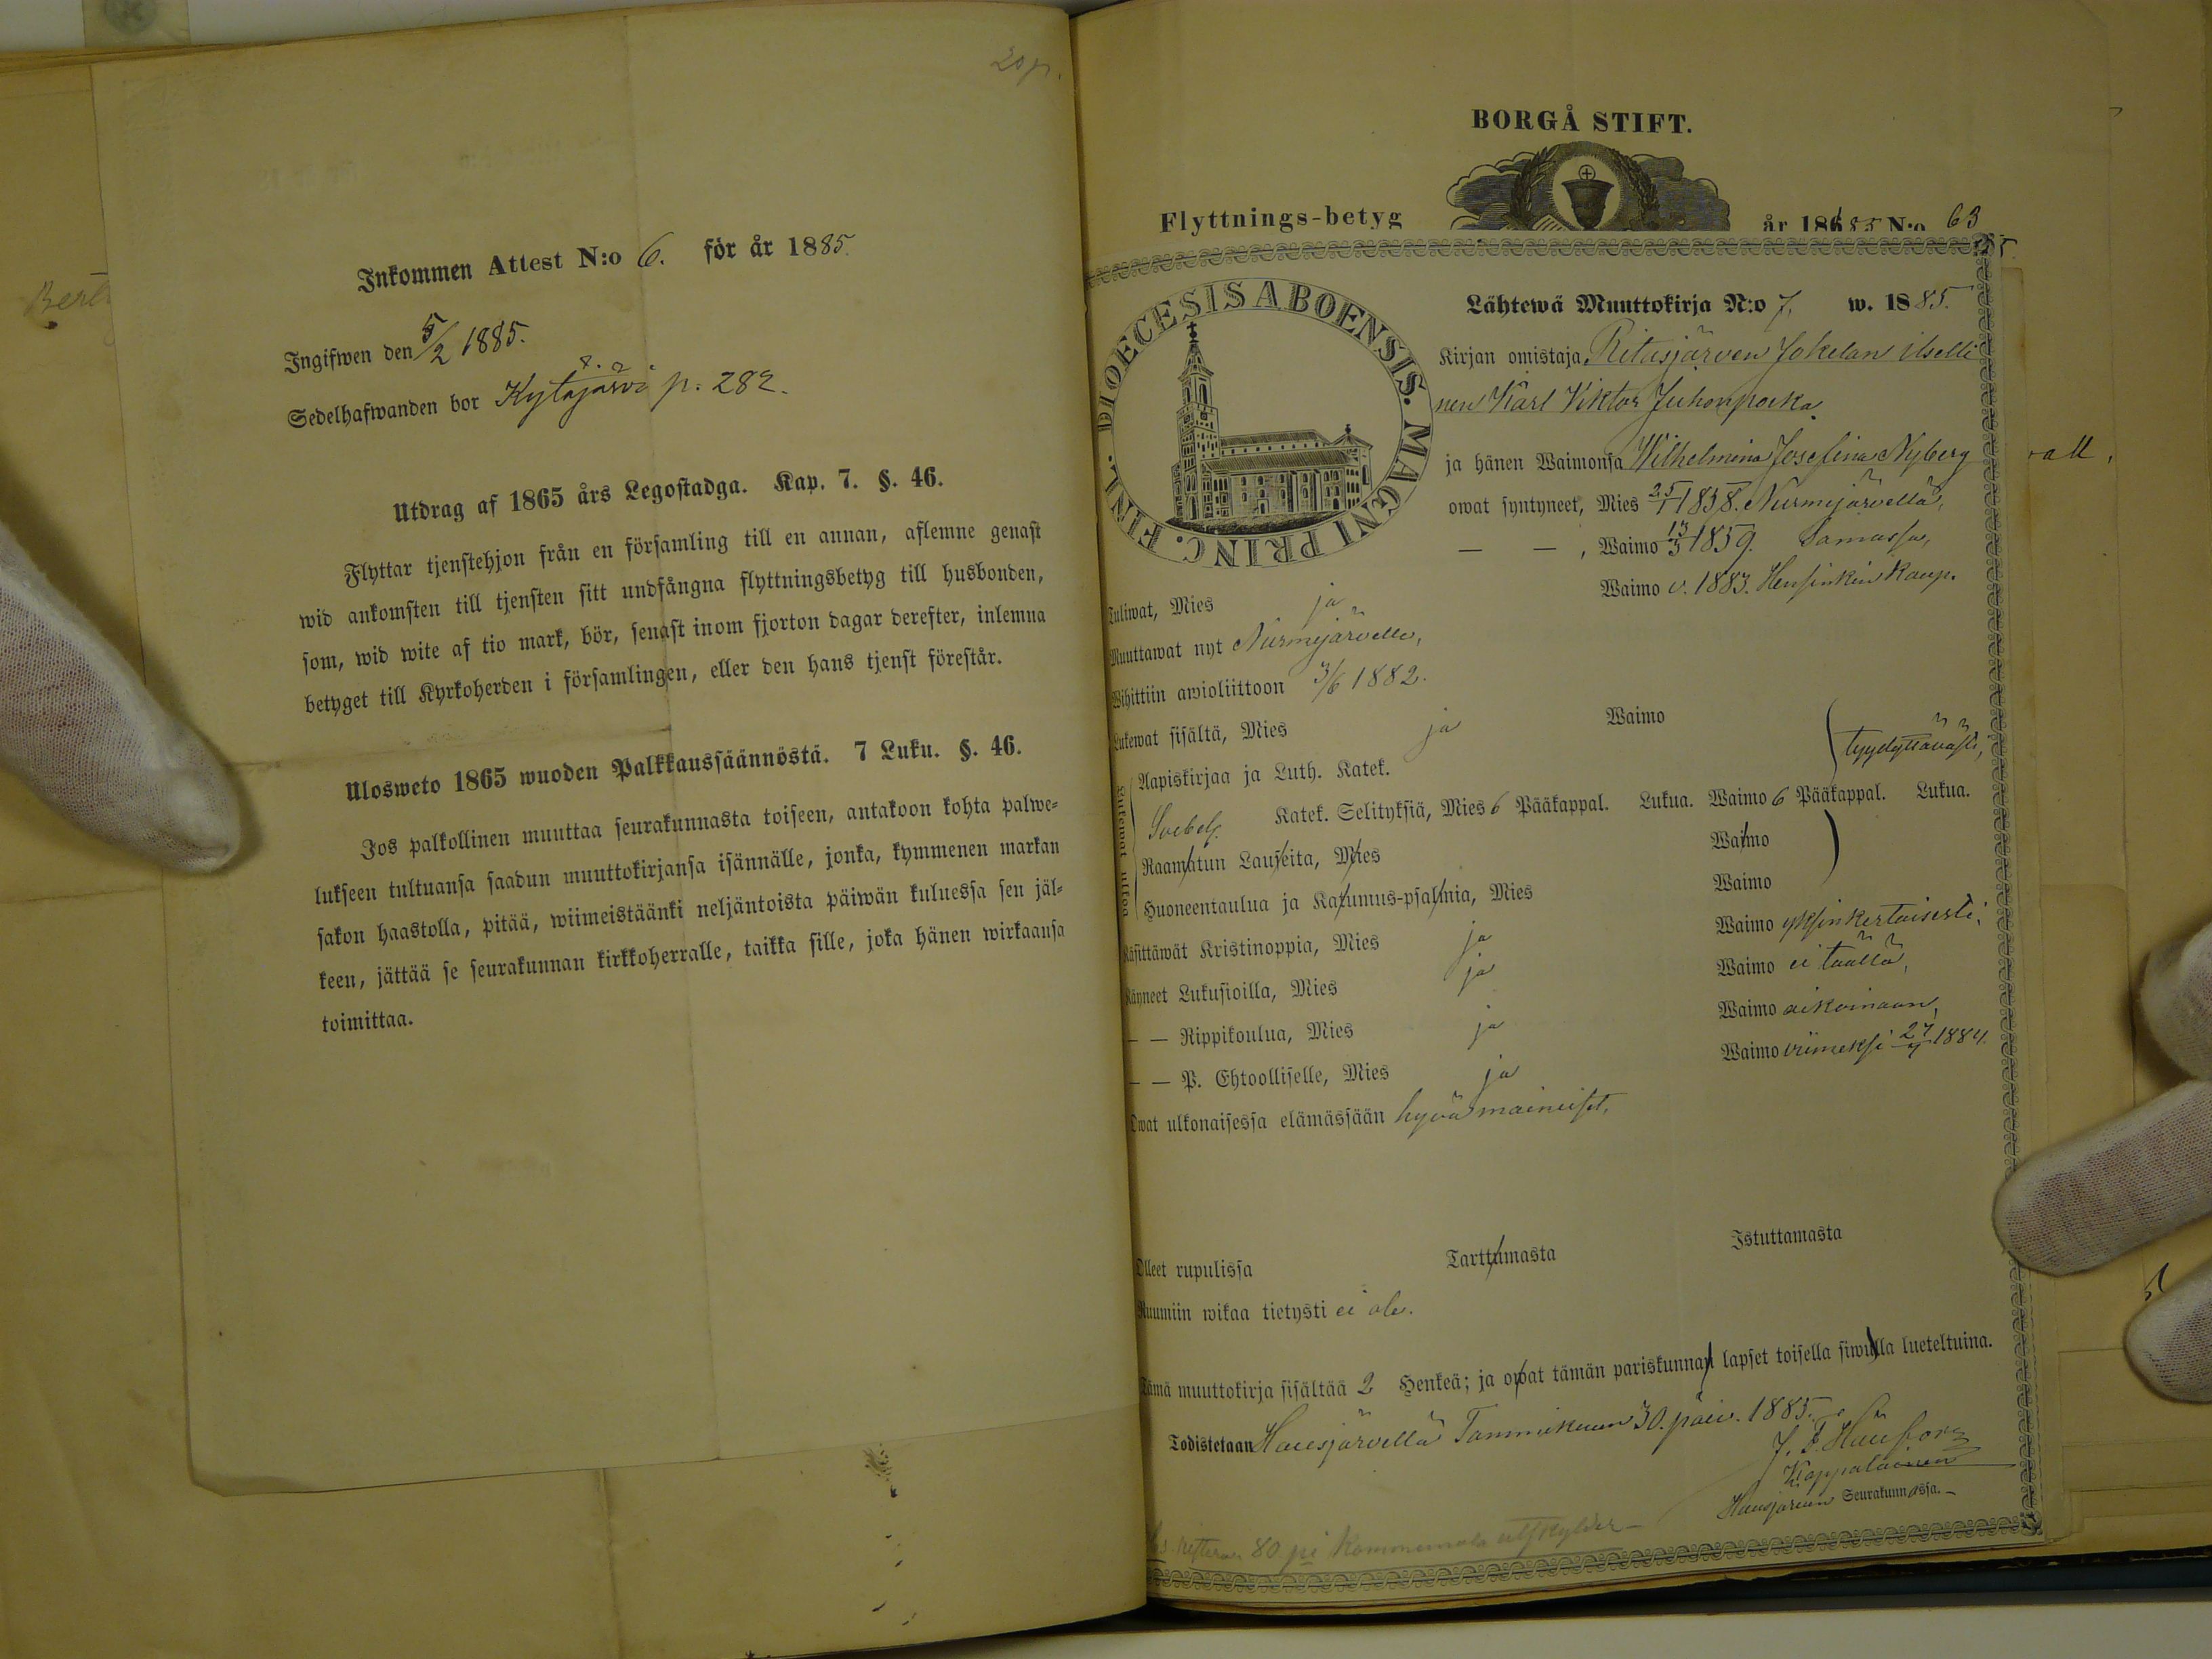 20 p.
Inkommen Attest N:o 6. för år 1885.
Ingifwen den 5/2 1885.
Sedelhafwanden bor Kytäjärvi p. 282.
Utdrag af 1865 års Legostadga. Kap. 7. §. 46.
Flyttar tjenstehjon från en församling till en annan, aflemne genast
wid ankomsten till tjensten sitt undfångna flyttningsbetyg till husbonden,
som, wid wite af tio mark, bör, senast inom fjorton dagar derefter, inlemna
betyget till Kyrkoherden i församlingen, eller den hans tjenst förestår.
Ulosweto 1865 wuoden Palkkaussäännöstä. 7 Luku. §. 46.
Jos palkollinen muuttaa seurakunnasta toiseen, antakoon kohta palwe-
lukseen tultuansa saadun muuttokirjansa isännälle, jonka, kymmenen markan
sakon haastolla, pitää, wiimeistäänki neljäntoista päiwän kuluessa sen jäl-
keen, jättää se seurakunnan kirkkoherralle, taikka sille, joka hänen wirkaansa
toimittaa.
BORGÅ STIFT.
Flyttnings-betyg år 1885 N:o 63
DIOECESIS ABOENSIS. MAGNI PRINC. FINL.
Lähtewä Muuttokirja N:o 7. w. 1885.
Kirjan omistaja Ritasjärven Jokelan itselli
nen Karl Viktor Juhonpoika
ja hänen Waimonsa Wilhelmina Josefina Nyberg
owat syntyneet, Mies 25/1 1858. Nurmijärvellä,
— — , Waimo 13/3 1859. Samassa,
Tuliwat, Mies ja Waimo v. 1883. Hensinkin kaup.
Muuttawat nyt Nurmijärvelle,
Wihittiin awioliittoon 3/6 1882.
Lukewat sisältä, Mies ja Waimo
Aapiskirjaa ja Luth. Katek. tyydyttävästi,
Katek. Selityksiä, Mies 6 Pääkappal. Lukua. Waimo 6 Pääkappal. Lukua.
Raamatun Lauseita, Mies Waimo
Huoneentaulua ja Katumus-psalmia, Mies Waimo
Käsittäwät Kristinoppia, Mies ja Waimo yksinkertaisesti,
Käyneet Lukusioilla, Mies ja Waimo ei täällä,
— — Rippikoulua, Mies ja Waimo aikoinaan,
— — P. Ehtoolliselle, Mies ja Waimo viimeksi 27/4 1884.
Owat ulkonaisessa elämässään hyvämaineiset.
Olleet rupulissa Tarttumasta Istuttamasta
Ruumiin wikaa tietysti ei ole.
Tämä muuttokirja sisältää 2 Henkeä; ja owat tämän pariskunnan lapset toisella siwulla lueteltuina.
Todistetaan Hausjärvellä Tammikuun 30. päiv. 1885.
Kappalainen
Hausjärven Seurakunnassa.
80 pi Kommunala utskylder